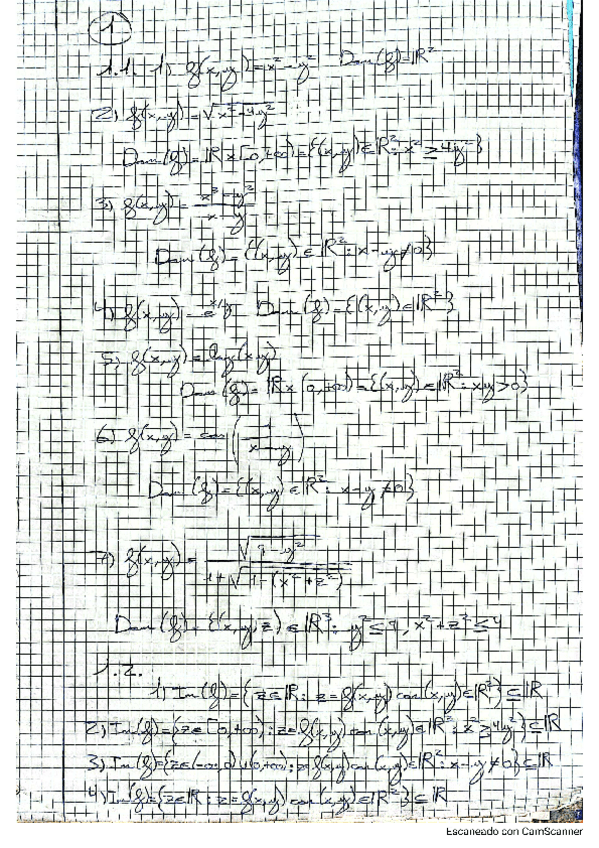 1
1.1. 1) f(x,y)=x²-y² Dom(f)=ℝ²
2) f(x,y)=√(x²-4y²)
Dom(f)=ℝ×[0,+∞)={(x,y)∈ℝ²: x²≥4y²}
3) f(x,y)=
Dom(f)={(x,y)∈ℝ²: x-y≠0}
4) f(x,y)=e^(x/y) Dom(f)={(x,y)∈ℝ²}
5) f(x,y)=log(xy)
Dom(f)=ℝ×(0,+∞)={(x,y)∈ℝ²: xy>0}
6) f(x,y)=cos(1/(x-y))
Dom(f)={(x,y)∈ℝ²: x-y≠0}
7) f(x,y)=
Dom(f)={(x,y,z)∈ℝ³: y²≤9, x²+z²≤4
1.2.
1) Im(f)={z∈ℝ: z=f(x,y) con (x,y)∈ℝ²}⊆ℝ
2) Im(f)={z∈[0,+∞): z=f(x,y) con (x,y)∈ℝ²: x²≥4y²}⊆ℝ
3) Im(f)={z∈(-∞,0)∪(0,+∞): z=f(x,y) con (x,y)∈ℝ²: x-y≠0}⊆ℝ
4) Im(f)={z∈ℝ: z=f(x,y) con (x,y)∈ℝ²}⊆ℝ
Escaneado con CamScanner